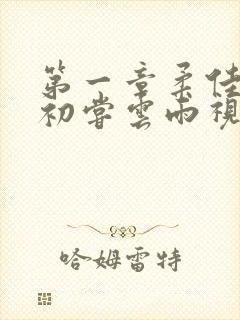 第一章柔佳
初尝雲雨視
哈姆雷特